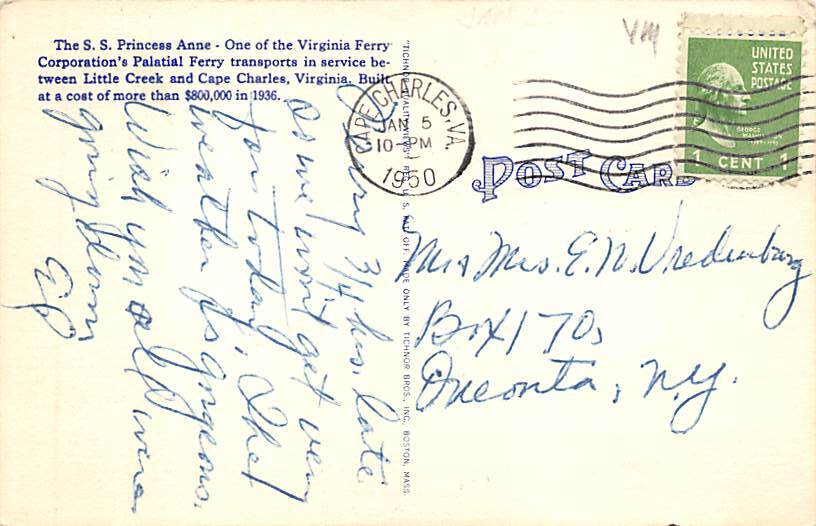 The S. S. Princess Anne - One of the Virginia Ferry
Corporation's Palatial Ferry transports in service be-
tween Little Creek and Cape Charles, Virginia. Built
at a cost of more than $800,000 in 1936.
3/4 hrs. late
as we won't get very
far today. The
weather is gorgeous.
Wish you all were
going
"TICHNOR QUALITY VIEWS," REG. U. S. PAT. OFF. MADE ONLY BY TICHNOR BROS., INC., BOSTON, MASS.
CAPE CHARLES, VA.
JAN 5
10-PM
1950
VM
UNITED
STATES
POSTAGE
GEORGE
WASHINGTON
1 CENT 1
POST CARD
Mr & Mrs. E. N. Vredenburg
Box 170,
Oneonta, N.Y.